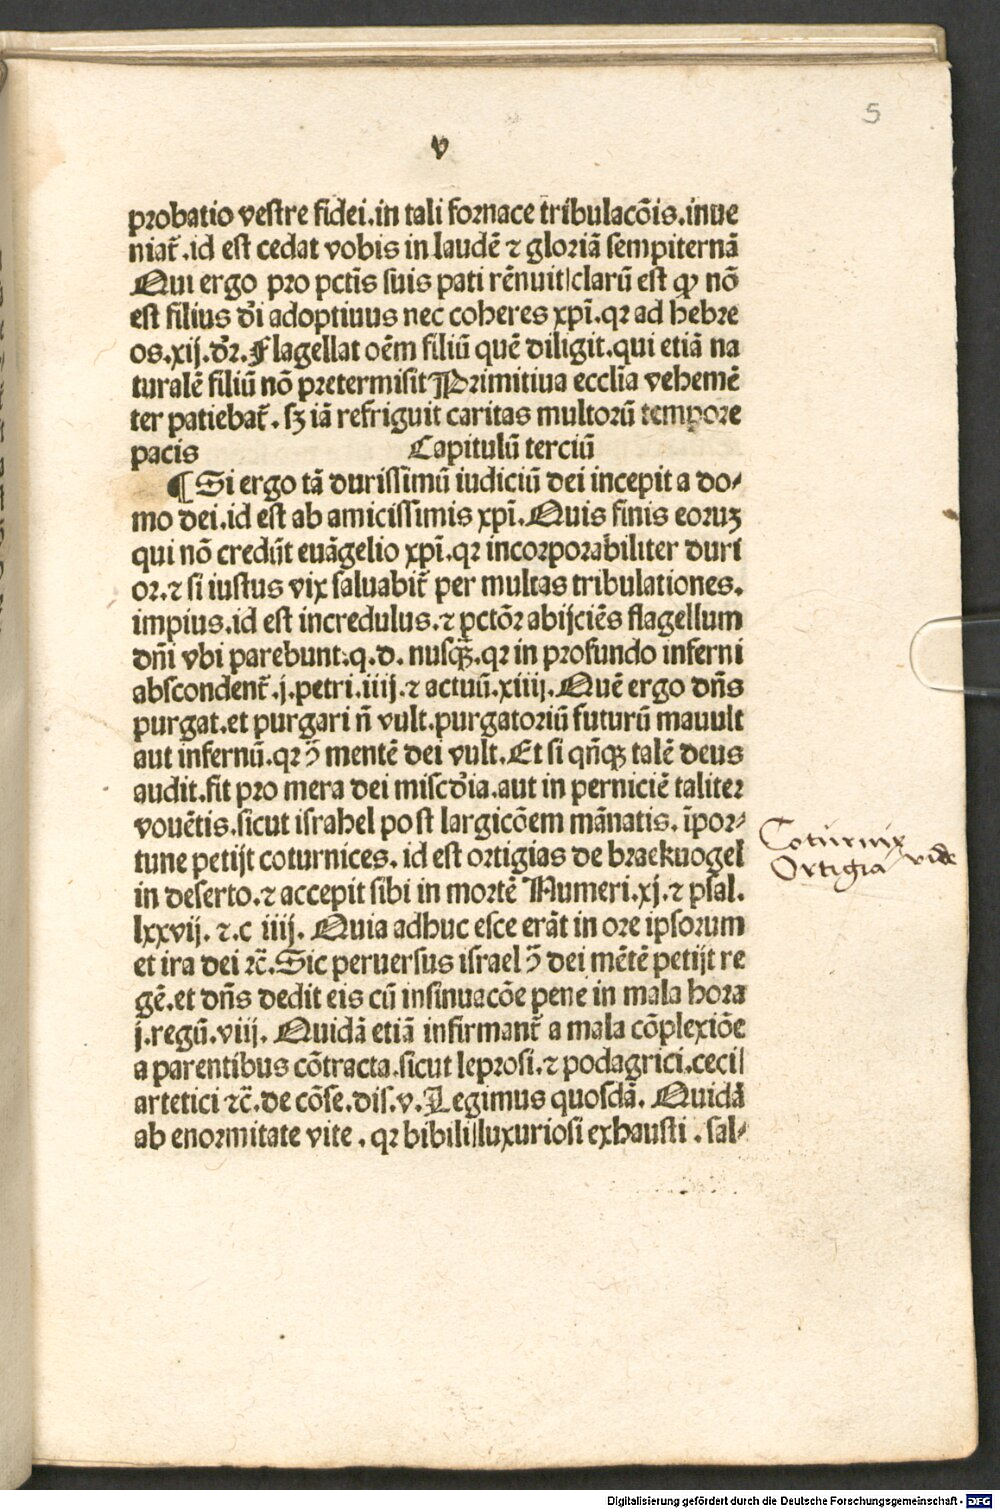 5
v
probatio vestre fidei.in tali fornace tribulacõis.inue
niat᷑.id est cedat vobis in laudẽ ⁊ gloriã sempiternã
Qui ergo pro pctĩs suis pati rẽnuit|clarũ est ꝙ nõ
est filius dĩ adoptiuus nec coheres xpĩ.qꝛ ad hebre
os.xij.dꝛ̃.Flagellat oẽm filiũ quẽ diligit.qui etiã na
turalẽ filiũ nõ pretermisit Primitiua ecclĩa vehemẽ
ter patiebat᷑. sꝫ iã refriguit caritas multorũ tempore
pacis Capitulũ terciũ
¶ Si ergo tã durissimũ iudiciũ dei incepit a do⸗
mo dei.id est ab amicissimis xpĩ.Quis finis eoruꝫ
qui nõ credũt euãgelio xpĩ.qꝛ incorporabiliter duri
or.⁊ si iustus vix saluabit᷑ per multas tribulationes.
impius.id est incredulus.⁊ pctõꝛ abijciẽs flagellum
dñi vbi parebunt.q.d. nusqꝫ̃.qꝛ in profundo inferni
abscondent᷑.j.petri.iiij.⁊ actuũ.xiiij.Quẽ ergo dñs
purgat.et purgari ñ vult.purgatoriũ futurũ mauult
aut infernũ.qꝛ ꝯ̃ mentẽ dei vult.Et si qñqꝫ talẽ deus
audit.fit pro mera dei miscd̃ia.aut in perniciẽ taliter
vouẽtis.sicut israhel post largicõem mãnatis. ĩpor⸗
tune petijt coturnices. id est ortigias de braekuogel
in deserto.⁊ accepit sibi in mortẽ Numeri.xj.⁊ psal.
lxxvij. ⁊.c iiij. Quia adhuc esce erãt in ore ipsorum
et ira dei ⁊c̃.Sic peruersus israel ꝯ̃ dei mẽtẽ petijt re
gẽ.et dñs dedit eis cũ insinuacõe pene in mala hora
j.regũ.viij. Quidã etiã infirmant᷑ a mala cõplexiõe
a parentibus cõtracta.sicut leprosi.⁊ podagrici.ceci|
artetici ⁊c̃.de cõse.dis.v.Legimus quosdã. Quidã
ab enormitate vite . qꝛ bibili|luxuriosi exhausti . sal⸗
Coturnix
Ortigia vide
Digitalisierung gefördert durch die Deutsche Forschungsgemeinschaft - DFG